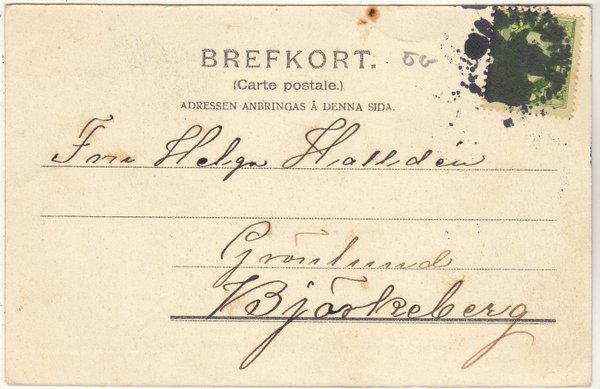 BREFKORT.
(Carte postale.)
ADRESSEN ANBRINGAS Å DENNA SIDA.
Fru Helga Halldén
Grönlund
Björkeberg